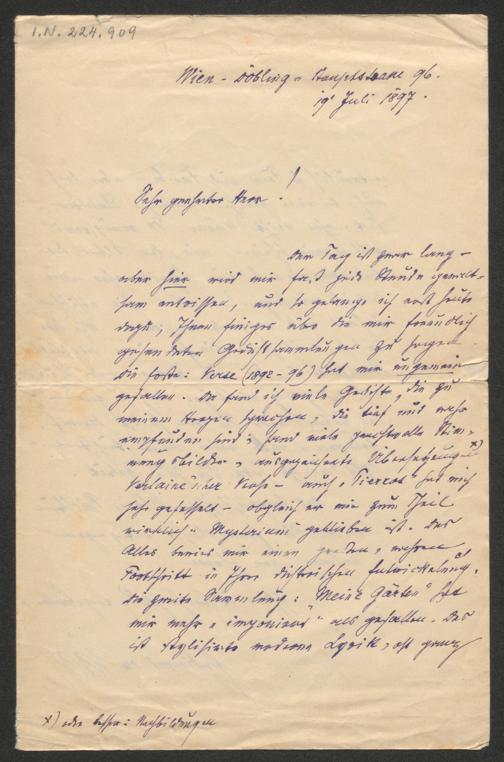 I.N. 224.909
Wien - Döbling - Hauptstrasse 96.
19t Juli 1897.
Sehr geehrter Herr!
Der Tag ist zwar lang -
aber hier wird mir fast jede Stunde gewalt-
sam entrissen, und so gelange ich erst heute
dazu, Ihnen Einiges über die mir freundlich
gesendeten Gedichtsammlungen zu sagen.
Die Erste: Verse (1892-96) hat mir ungemein
gefallen. Da fand ich viele Gedichte, die zu
meinem Herzen sprachen, die tief und wahr
empfunden sind; fand viele prachtvolle Stim-
mungsbilder, ausgezeichnete Übersetzungen x)
Verlaine'scher Verse - auch „Pierrot" hat mich
sehr gefesselt - obgleich er mir zum Theil
wirklich „Mysterium" geblieben ist. Das
Alles beweist mir einen großen, wahren
Fortschritt in Ihrer dichterischen Entwickelung.
Die zweite Sammlung: „Meine Gärten" hat
mir mehr „imponiert" als gefallen. Das
ist stylisierte moderne Lyrik, oft ganz
x) oder besser: Nachbildungen